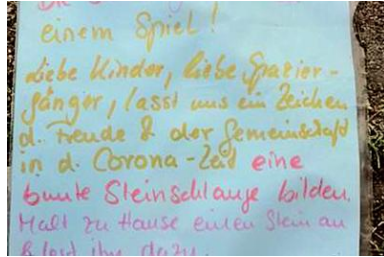 einem Spiel!
Liebe Kinder, liebe Spazier-
gänger, lasst uns ein Zeichen
d. Freude & der Gemeinschaft
in d. Corona-Zeit eine
bunte Steinschlange bilden.
Malt zu Hause einen Stein an
& legt ihn dazu.